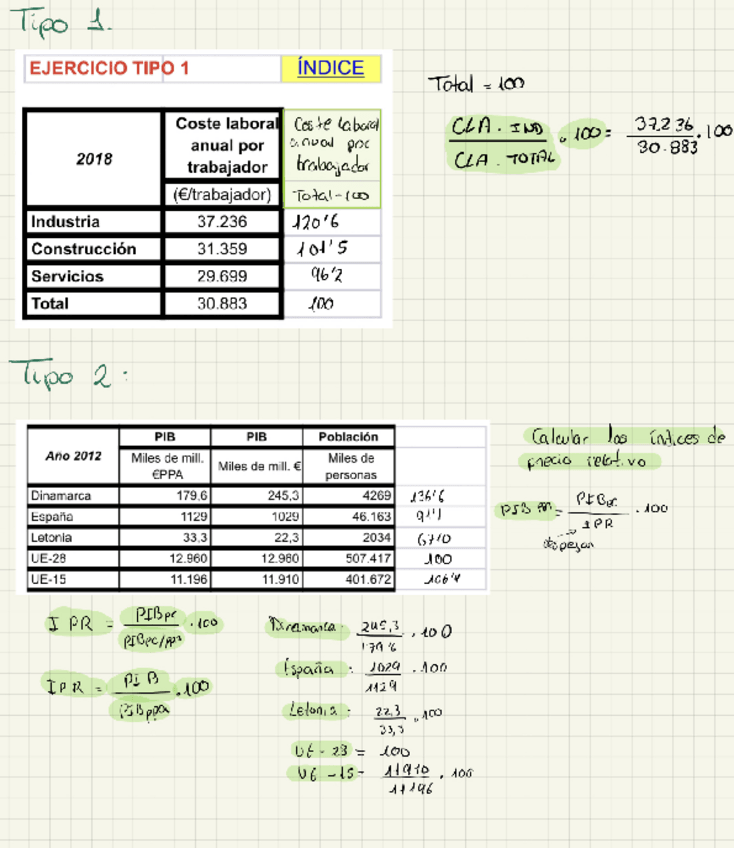 Tipo 1.
EJERCICIO TIPO 1 ÍNDICE
Total = 100
2018 Coste laboral anual por trabajador Coste laboral anual por trabajador
(€/trabajador) Total=100
Industria 37.236 120'6
Construcción 31.359 101'5
Servicios 29.699 96'2
Total 30.883 100
CLA. IND / CLA. TOTAL . 100 = 37.236 / 30.883 . 100
Tipo 2:
Año 2012 PIB PIB Población
Miles de mill. €PPA Miles de mill. € Miles de personas
Dinamarca 179,6 245,3 4269 136'6
España 1129 1029 46.163 91'1
Letonia 33,3 22,3 2034 67'0
UE-28 12.960 12.960 507.417 100
UE-15 11.196 11.910 401.672 106'4
Calcular los índices de
precio relativo
= PIBpc / IPR . 100
despejar
IPR = PIBpc / PIBpc/ppa . 100
IPR = PIB / PIBppa . 100
Dinamarca: 245,3 / 179'6 . 100
España: 1029 / 1129 . 100
Letonia: 22,3 / 33,3 . 100
UE-28 = 100
UE-15 = 11910 / 11196 . 100